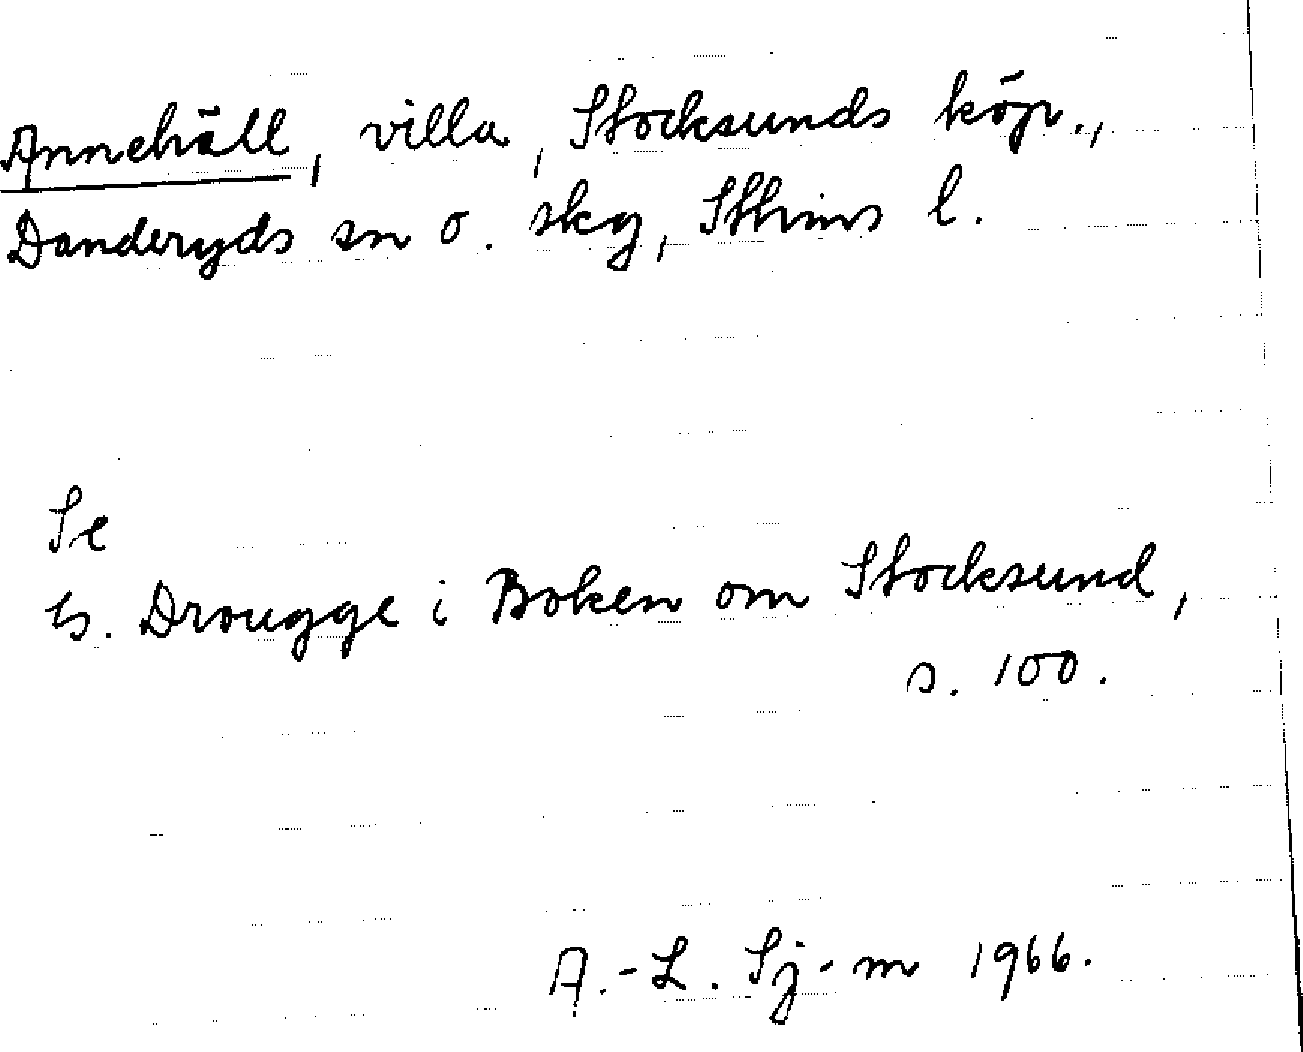 Annehäll, villa, Stocksunds köp.,
Danderyds sn o. skg, Sthms l.
Se
G. Drougge i Boken om Stocksund,
s. 100.
A.-L. Sj-m 1966.